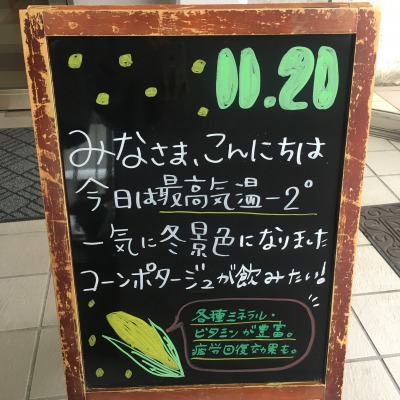 11.20
みなさま、こんにちは
今日は最高気温-2°
一気に冬景色になりました
コーンポタージュが飲みたい!
各種ミネラル・
ビタミンが豊富。
疲労回復効果も。